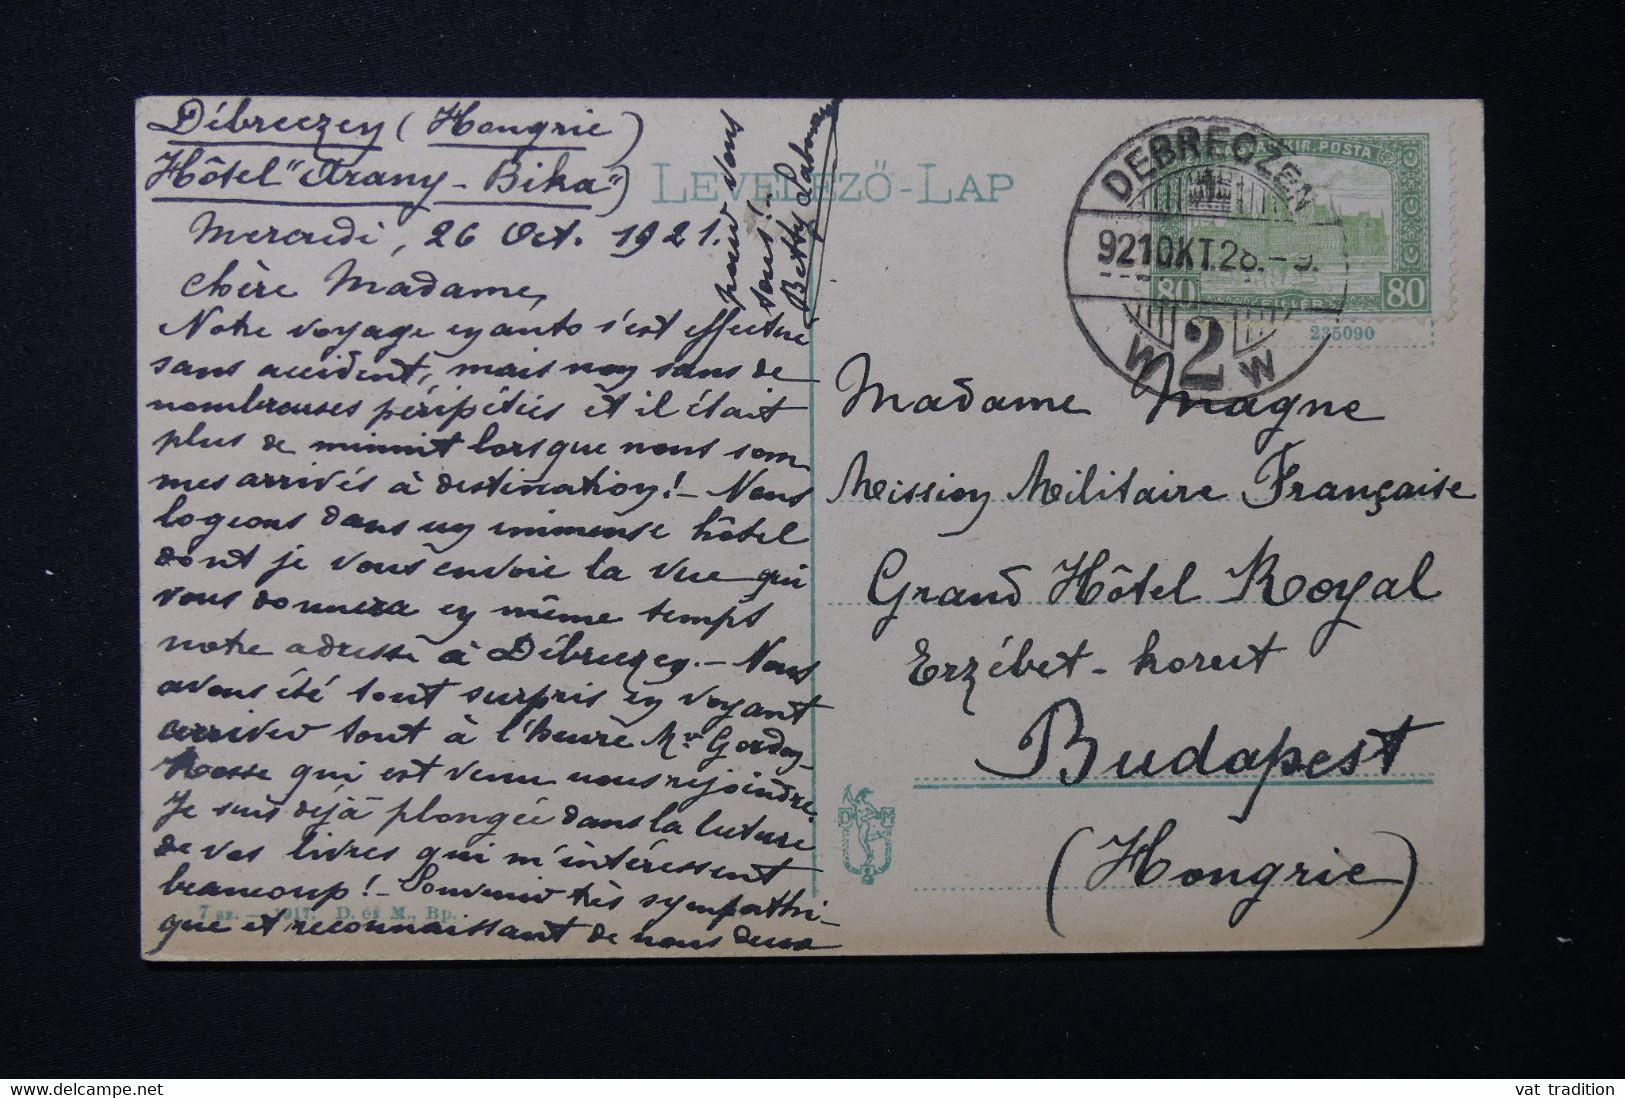 Débreczen (Hongrie)
Hôtel "Arany-Bika"
Mercredi, 26 Oct. 1921.
Chère Madame,
Notre voyage en auto s'est effectué
sans accident, mais non sans de
nombreuses péripéties et il était
plus de minuit lorsque nous som
mes arrivés à destination! - Nous
logeons dans un immense hôtel
dont je vous envoie la vue qui
vous donnera en même temps
notre adresse à Débreczen. - Nous
avons été tout surpris en voyant
arriver tout à l'heure Mr Gordon-
Rosse qui est venu nous rejoindre.
Je suis déjà plongée dans la lecture
de vos livres qui m'intéressent
beaucoup! - Souvenir très sympathi-
que et reconnaissant de nous deux
pour vous
tous! -
Betty
LEVELEZŐ-LAP
7 sz. — 1917. D. és M., Bp.
D M
DEBRECZEN
921 OKT. 28. - 9.
2
W W
MAGYAR KIR. POSTA
80 FILLÉR 80
235090
Madame Magne
Mission Militaire Française
Grand Hôtel Royal
Erzébet-korut
Budapest
(Hongrie)
vat tradition
www.delcampe.net